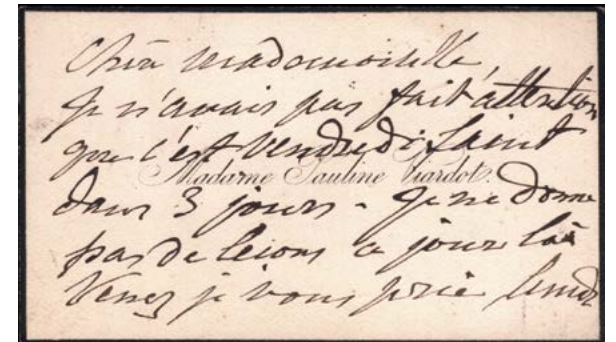 Chère mademoiselle,
Je n'avais pas fait attention
que c'est Vendredi Saint
Madame Pauline Viardot.
dans 3 jours - Je ne donne
pas de leçons ce jour là
Venez je vous prie lundi